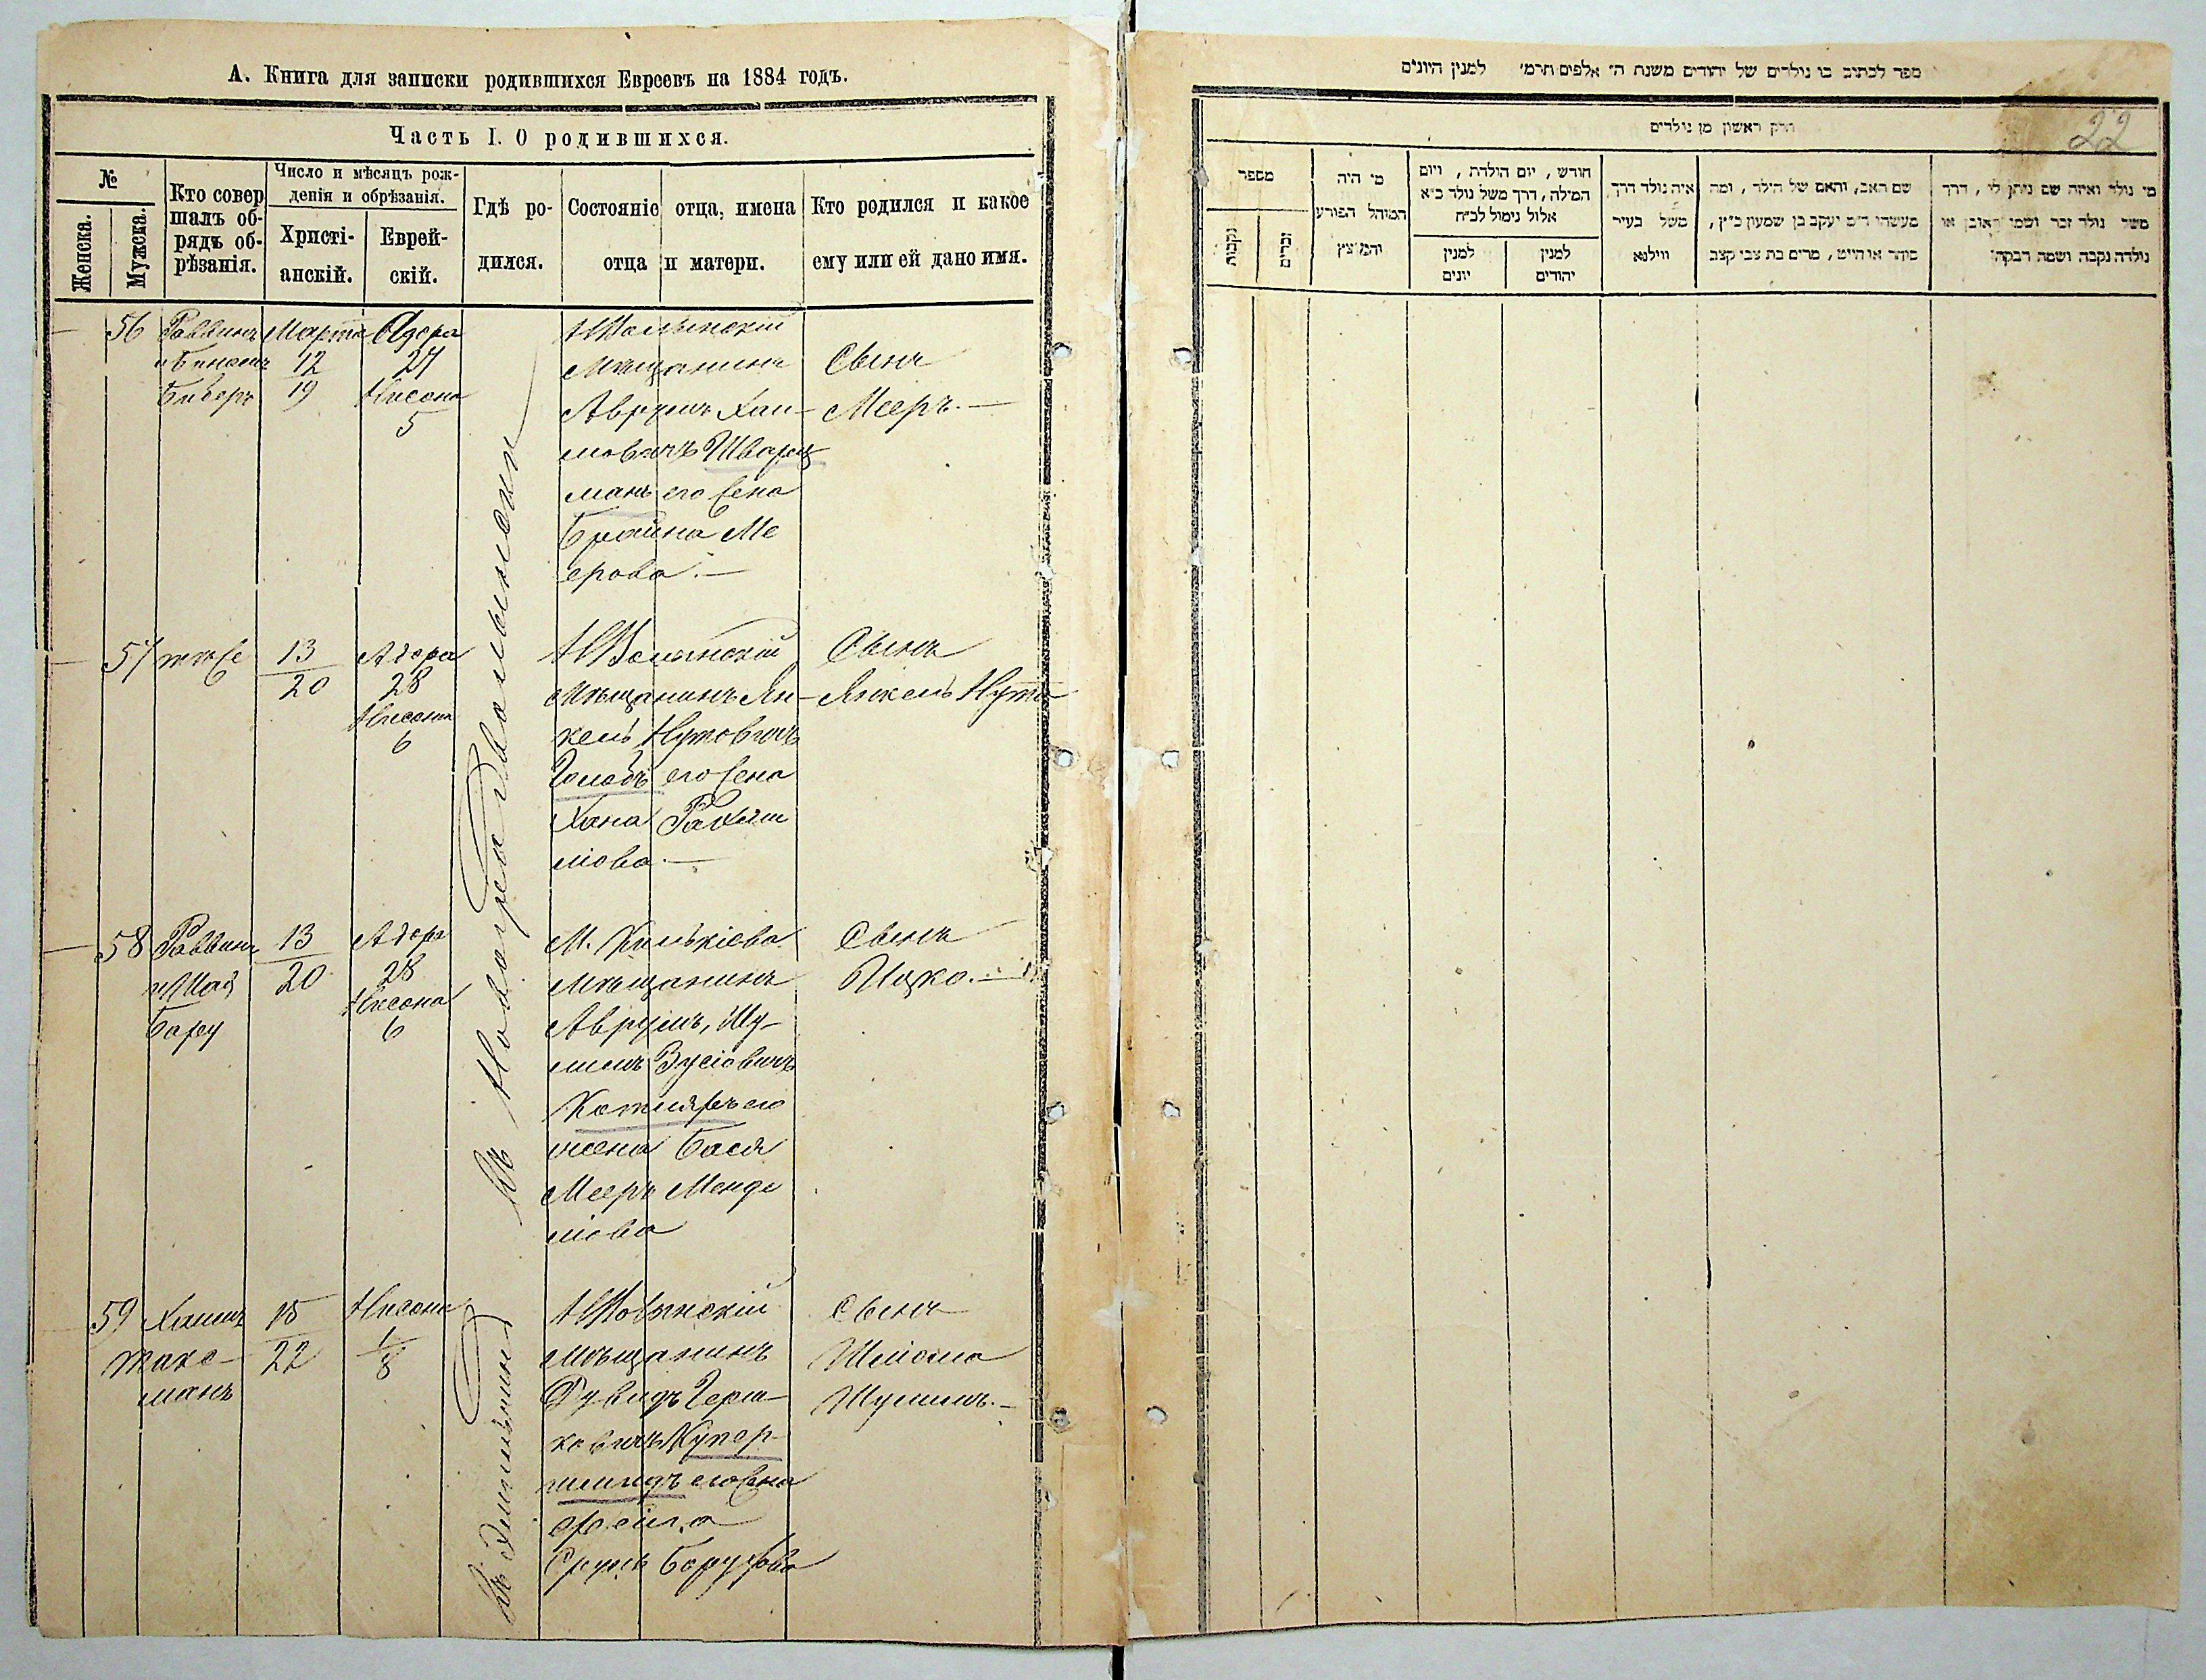 А. Книга для записки родившихся Евреевъ на 1884 годъ.
Часть I. О родившихся.
№
Женска.
Мужска.
Кто совер
шалъ об-
рядъ об-
рѣзанія.
Число и мѣсяцъ рож-
денія и обрѣзанія.
Христі-
анскій.
Еврей-
скій.
Гдѣ ро-
дился.
Состояніе отца, имена
отца и матери.
Кто родился и какое
ему или ей дано имя.
56 Раввинъ
Биберъ
Марта
12
19
Адора
27
Нисона
5
Мѣщанинъ
Аврумъ Хаи-
мовичъ Шварц
манъ его жена
Брайна Ме
ерова.—
Сынъ
Мееръ.—
57 тоже
13
20
Адора
28
Нисона
6
НВолынскій
Мѣщанинъ Ян-
кель Нутовичъ
его жена
Хана
Сынъ
Янкель Нута
58 Раввинъ
13
20
Адора
28
Нисона
6
М.
Мѣщанинъ
Аврумъ, Шу-
лимъ Зусіовичъ
Котляръ его
жена Бася
Мееръ Менде
ліова
Сынъ
Ицко.—
Въ Новоградволынскѣ
59 Хаимъ
манъ
15
22
Нисона
1
8
НВолынскій
Мѣщанинъ
Дувидъ Герш-
ковичъ Купер-
шмидъ его жена
Фейга
Борухова
Сынъ
Шлёма
Шулимъ.—
ספר לכתוב בו נולדים של יהודים משנת ה' אלפים תרמ' למנין היונים
22
חלק ראשון מן נולדים
מספר
נקבות
זכרים
מי היה
המוהל הפורע
והמוצץ
חודש, יום הולדת, ויום
המילה, דרך משל נולד כ"א
אלול נימול לכ"ח
למנין
יונים
למנין
יהודים
איה נולד דרך
משל בעיר
ווילנא
שם האב, והאם של הילד, ומה
מעשהו ד"מ יעקב בן שמעון כ"ץ,
סוחר או חייט, מרים בת צבי קצב
מי נולד ואיזה שם ניתן לו, דרך
משל נולד זכר ושמו ראובן או
נולדה נקבה ושמה רבקה: